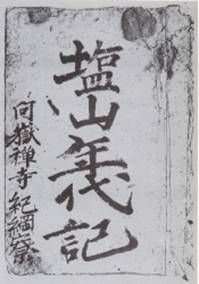 塩山年代記
向嶽禅寺 紀綱寮